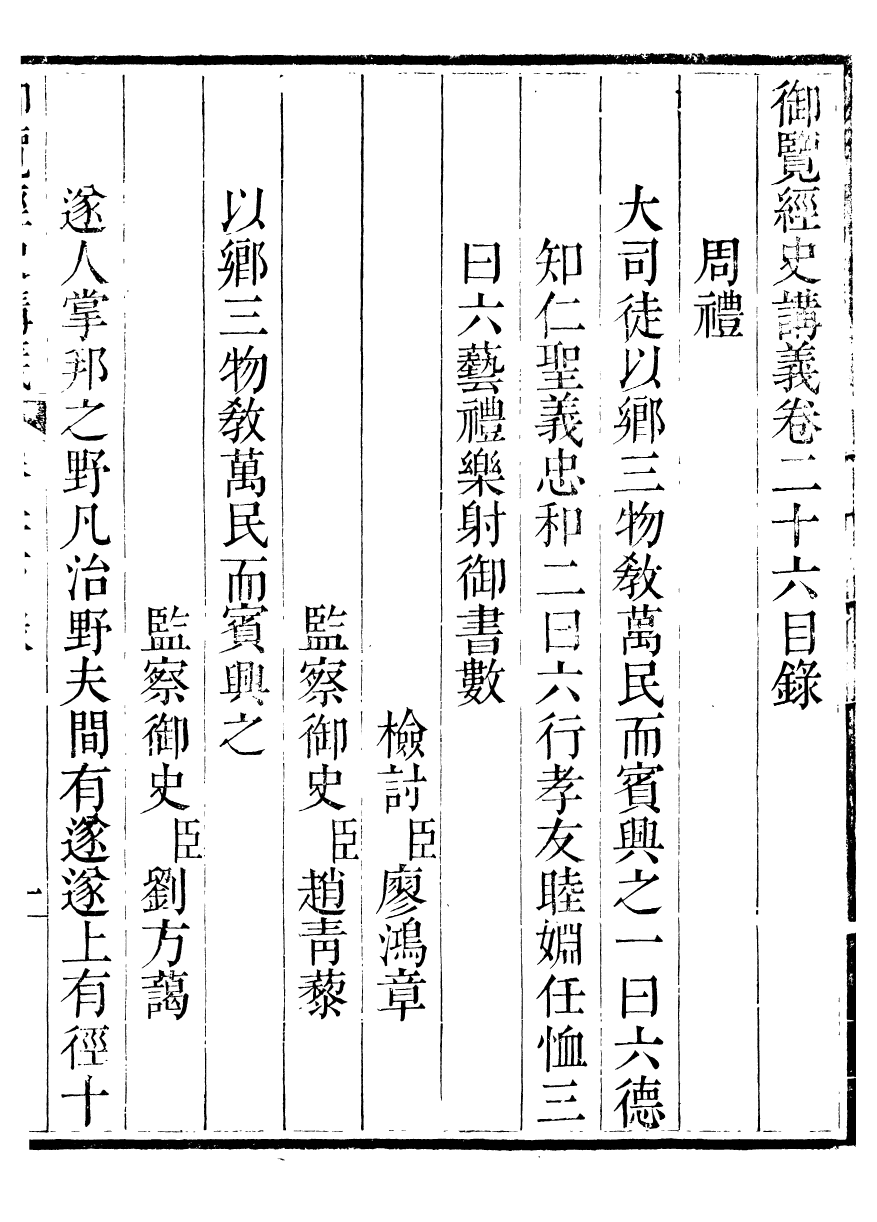 御覽經史講義卷二十六目錄
周禮
大司徒以鄉三物敎萬民而賓興之一曰六德
知仁聖義忠和二曰六行孝友睦婣任恤三
曰六藝禮樂射御書數
檢討臣廖鴻章
監察御史臣趙靑藜
以鄉三物敎萬民而賓興之
監察御史臣劉方藹
遂人掌邦之野凡治野夫間有遂遂上有徑十